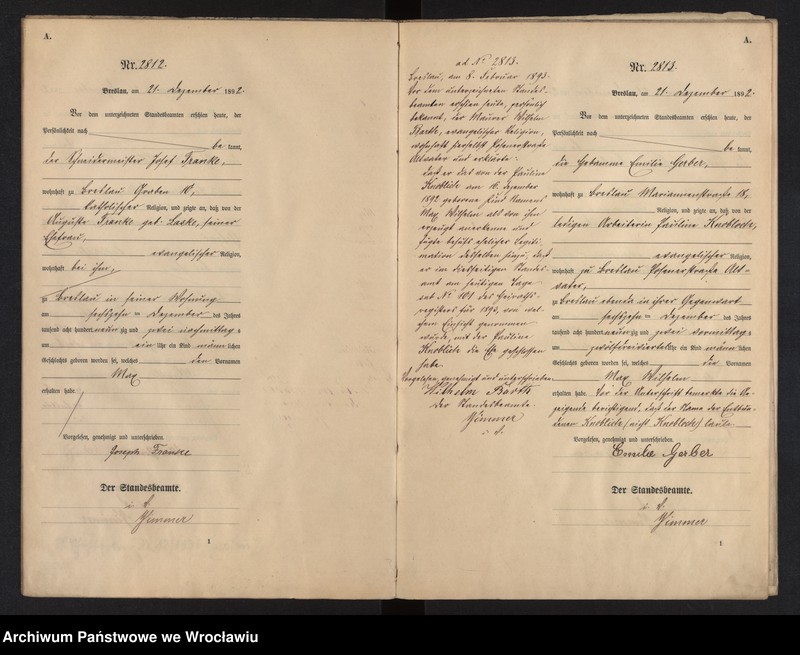 A.
Nr. 2812.
Breslau, am 21. Dezember 1892.
Vor dem unterzeichneten Standesbeamten erschien heute, der
Persönlichkeit nach
be kannt,
der Schneidermeister Josef Franke,
wohnhaft zu Breslau Graben 10,
katholischer Religion, und zeigte an, daß von der
Auguste Franke geb. Laske, seiner
Ehefrau,
evangelischer Religion,
wohnhaft bei ihm,
zu Breslau in seiner Wohnung
am sechszehn ten Dezember des Jahres
tausend acht hundert neun zig und zwei nachmittag s
um ein Uhr ein Kind männ lichen
Geschlechts geboren worden sei, welches den Vornamen
Max
erhalten habe.
Vorgelesen, genehmigt und unterschrieben
Joseph Franke
Der Standesbeamte.
Zimmer
1
ad No 2813.
Breslau, am 8. Februar 1893.
Vor dem unterzeichneten Standes-
beamten erschien heute, persönlich
bekannt, der Maurer Wilhelm
Barthe, evangelischer Religion,
wohnhaft hierselbst Posenerstraße
und erklärte:
daß er das von der Pauline
Knoblich am 16. Dezember
1892 geborene Kind Namens
Max Wilhelm als von ihm
erzeugt anerkenne und
fügte behufs ehelicher Legiti-
mation desselben hinzu, daß
er im diesseitigen Standes-
amt am heutigen Tage
sub No 101 des Heiraths-
registers für 1893, von wel-
chem Einsicht genommen
wurde, mit der Pauline
Knoblich die Ehe geschlossen
habe.
Vorgelesen, genehmigt und unterschrieben
Wilhelm Barth
Der Standesbeamte.
Zimmer
A.
Nr. 2813.
Breslau, am 21. Dezember 1892.
Vor dem unterzeichneten Standesbeamten erschien heute, der
Persönlichkeit nach
be kannt,
die Hebamme Emilie Gerber,
wohnhaft zu Breslau Mariannenstraße 18,
Religion, und zeigte an, daß von der
ledigen Arbeiterin Pauline Knoblode,
evangelischer Religion,
wohnhaft zu Breslau Posenerstraße
zu Breslau ebenda in ihrer Gegenwart
am sechszehn ten Dezember des Jahres
tausend acht hundert neun zig und zwei vormittag s
um Uhr ein Kind männ lichen
Geschlechts geboren worden sei, welches die Vornamen
Max Wilhelm
erhalten habe. Vor der Unterschrift bemerkte die An-
zeigende berichtigend, daß der Name der Entbun-
denen Knoblich (nicht Knoblode) laute
Vorgelesen, genehmigt und unterschrieben
Emilie Gerber
Der Standesbeamte.
Zimmer
1
Archiwum Państwowe we Wrocławiu